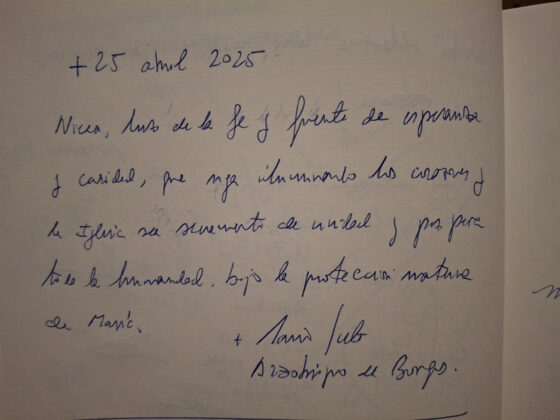 + 25 abril 2025
Nicea, luz de la fe y fuente de esperanza
y caridad, que siga iluminando los corazones y
la Iglesia sea sacramento de unidad y paz para
toda la humanidad, bajo la protección materna
de María.
+ Mario
Arzobispo de Burgos.